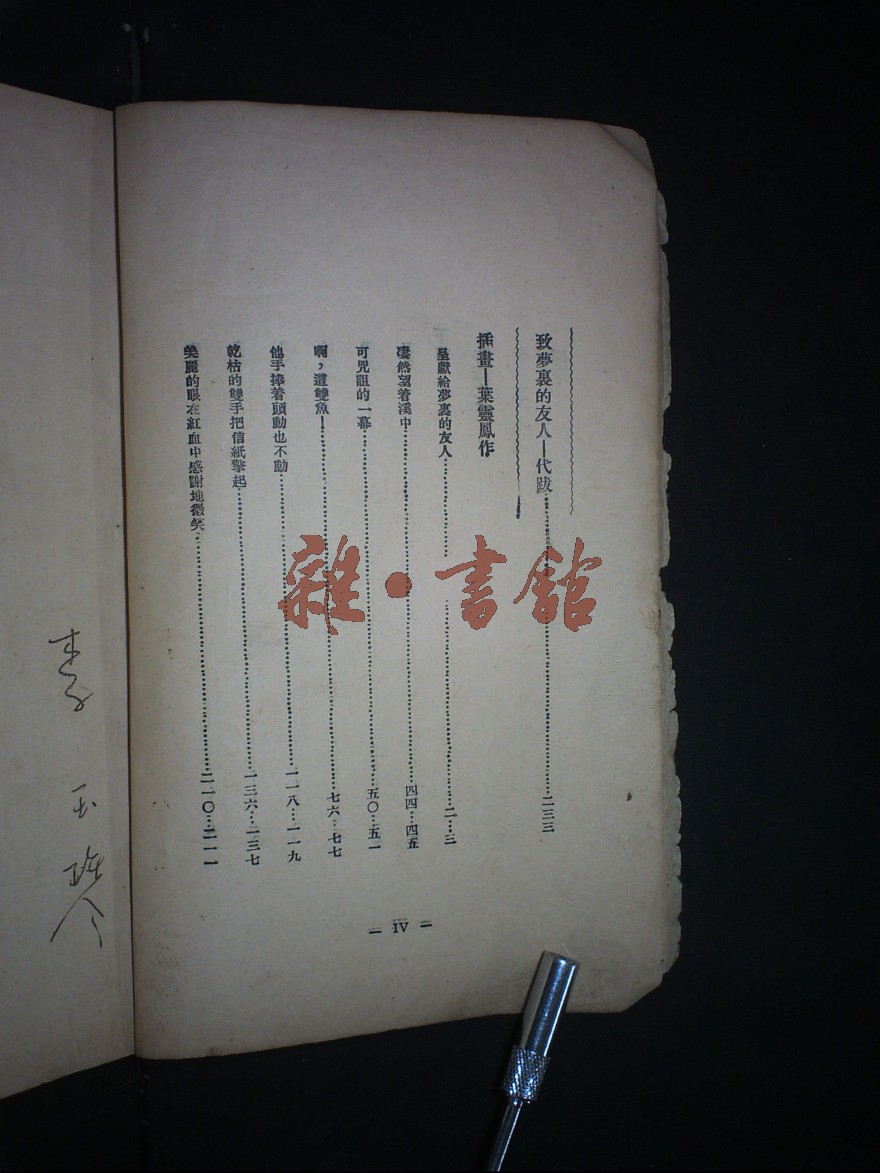 致夢裏的友人—代跋……二三三
插畫—葉靈鳳作
呈獻給夢裏的友人……二…三
凄然望着溪中……四四…四五
可咒詛的一幕……五〇…五一
啊，這雙魚—……七六…七七
他手捧着頭動也不動……一一八…一一九
乾枯的雙手把信紙擎起……一三六…一三七
美麗的眼在紅血中感謝地微笑……二一〇…二一一
— IV —
雜·書館
李
玉